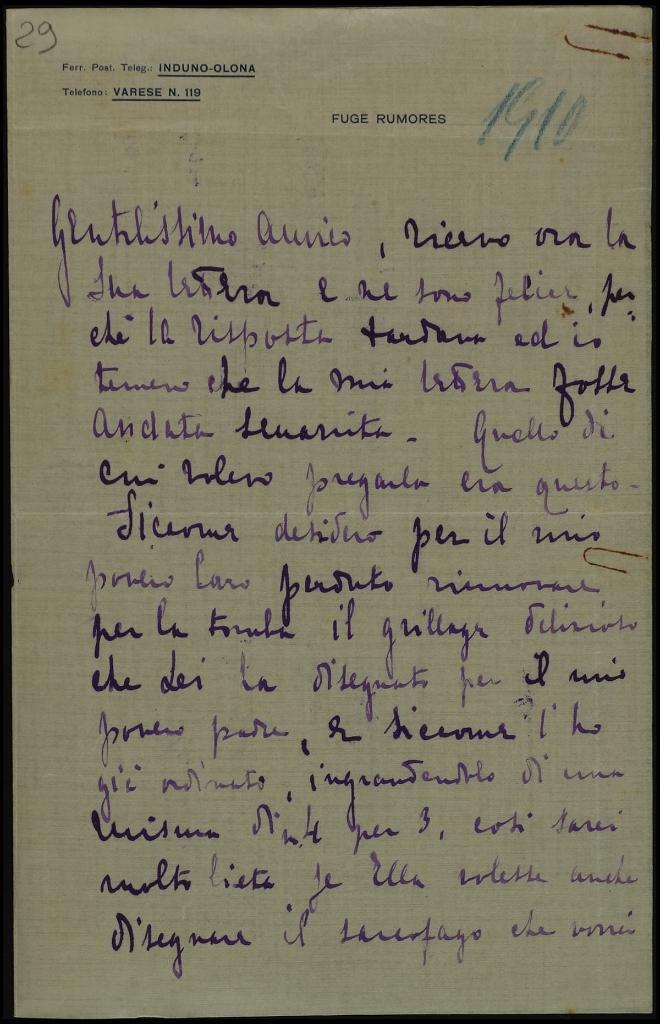 29
Ferr. Post. Teleg.: INDUNO-OLONA
Telefono: VARESE N. 119
FUGE RUMORES
1910
Gentilissimo amico, ricevo ora la
Sua lettera e ne sono felice, per
chè la risposta tardava ed io
temevo che la mia lettera fosse
andata smarrita. Quello di
cui volevo pregarla era questo.
Siccome desidero per il mio
povero caro perduto rinnovare
per la tomba il grillage delizioso
che Lei ha disegnato per il mio
povero padre, e siccome l'ho
già ordinato, ingrandendolo di una
misura di 4 per 3, così sarei
molto lieta se Ella volesse anche
disegnare il sarcofago che vorrei